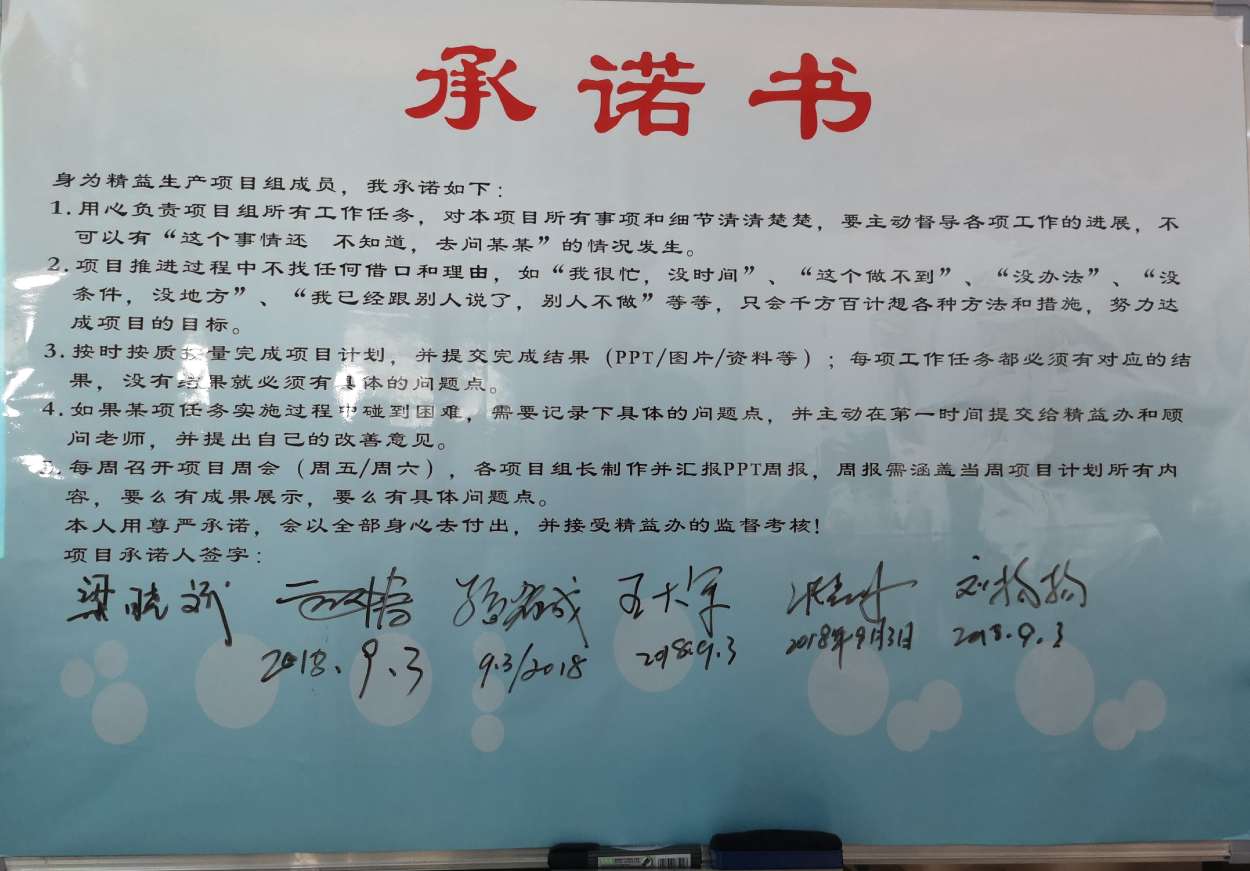 承诺书
身为精益生产项目组成员，我承诺如下：
1.用心负责项目组所有工作任务，对本项目所有事项和细节清清楚楚，要主动督导各项工作的进展，不
可以有“这个事情还 不知道，去问某某”的情况发生。
2.项目推进过程中不找任何借口和理由，如“我很忙，没时间”、“这个做不到”、“没办法”、“没
条件，没地方”、“我已经跟别人说了，别人不做”等等，只会千方百计想各种方法和措施，努力达
成项目的目标。
3.按时按质按量完成项目计划，并提交完成结果（PPT/图片/资料等）；每项工作任务都必须有对应的结
果，没有结果就必须有具体的问题点。
4.如果某项任务实施过程中碰到困难，需要记录下具体的问题点，并主动在第一时间提交给精益办和顾
问老师，并提出自己的改善意见。
5.每周召开项目周会（周五/周六），各项目组长制作并汇报PPT周报，周报需涵盖当周项目计划所有内
容，要么有成果展示，要么有具体问题点。
本人用尊严承诺，会以全部身心去付出，并接受精益办的监督考核！
项目承诺人签字：
梁晓斌 王大军 刘杨杨
2018.9.3 9.3/2018 2018.9.3 2018年9月3日 2018.9.3